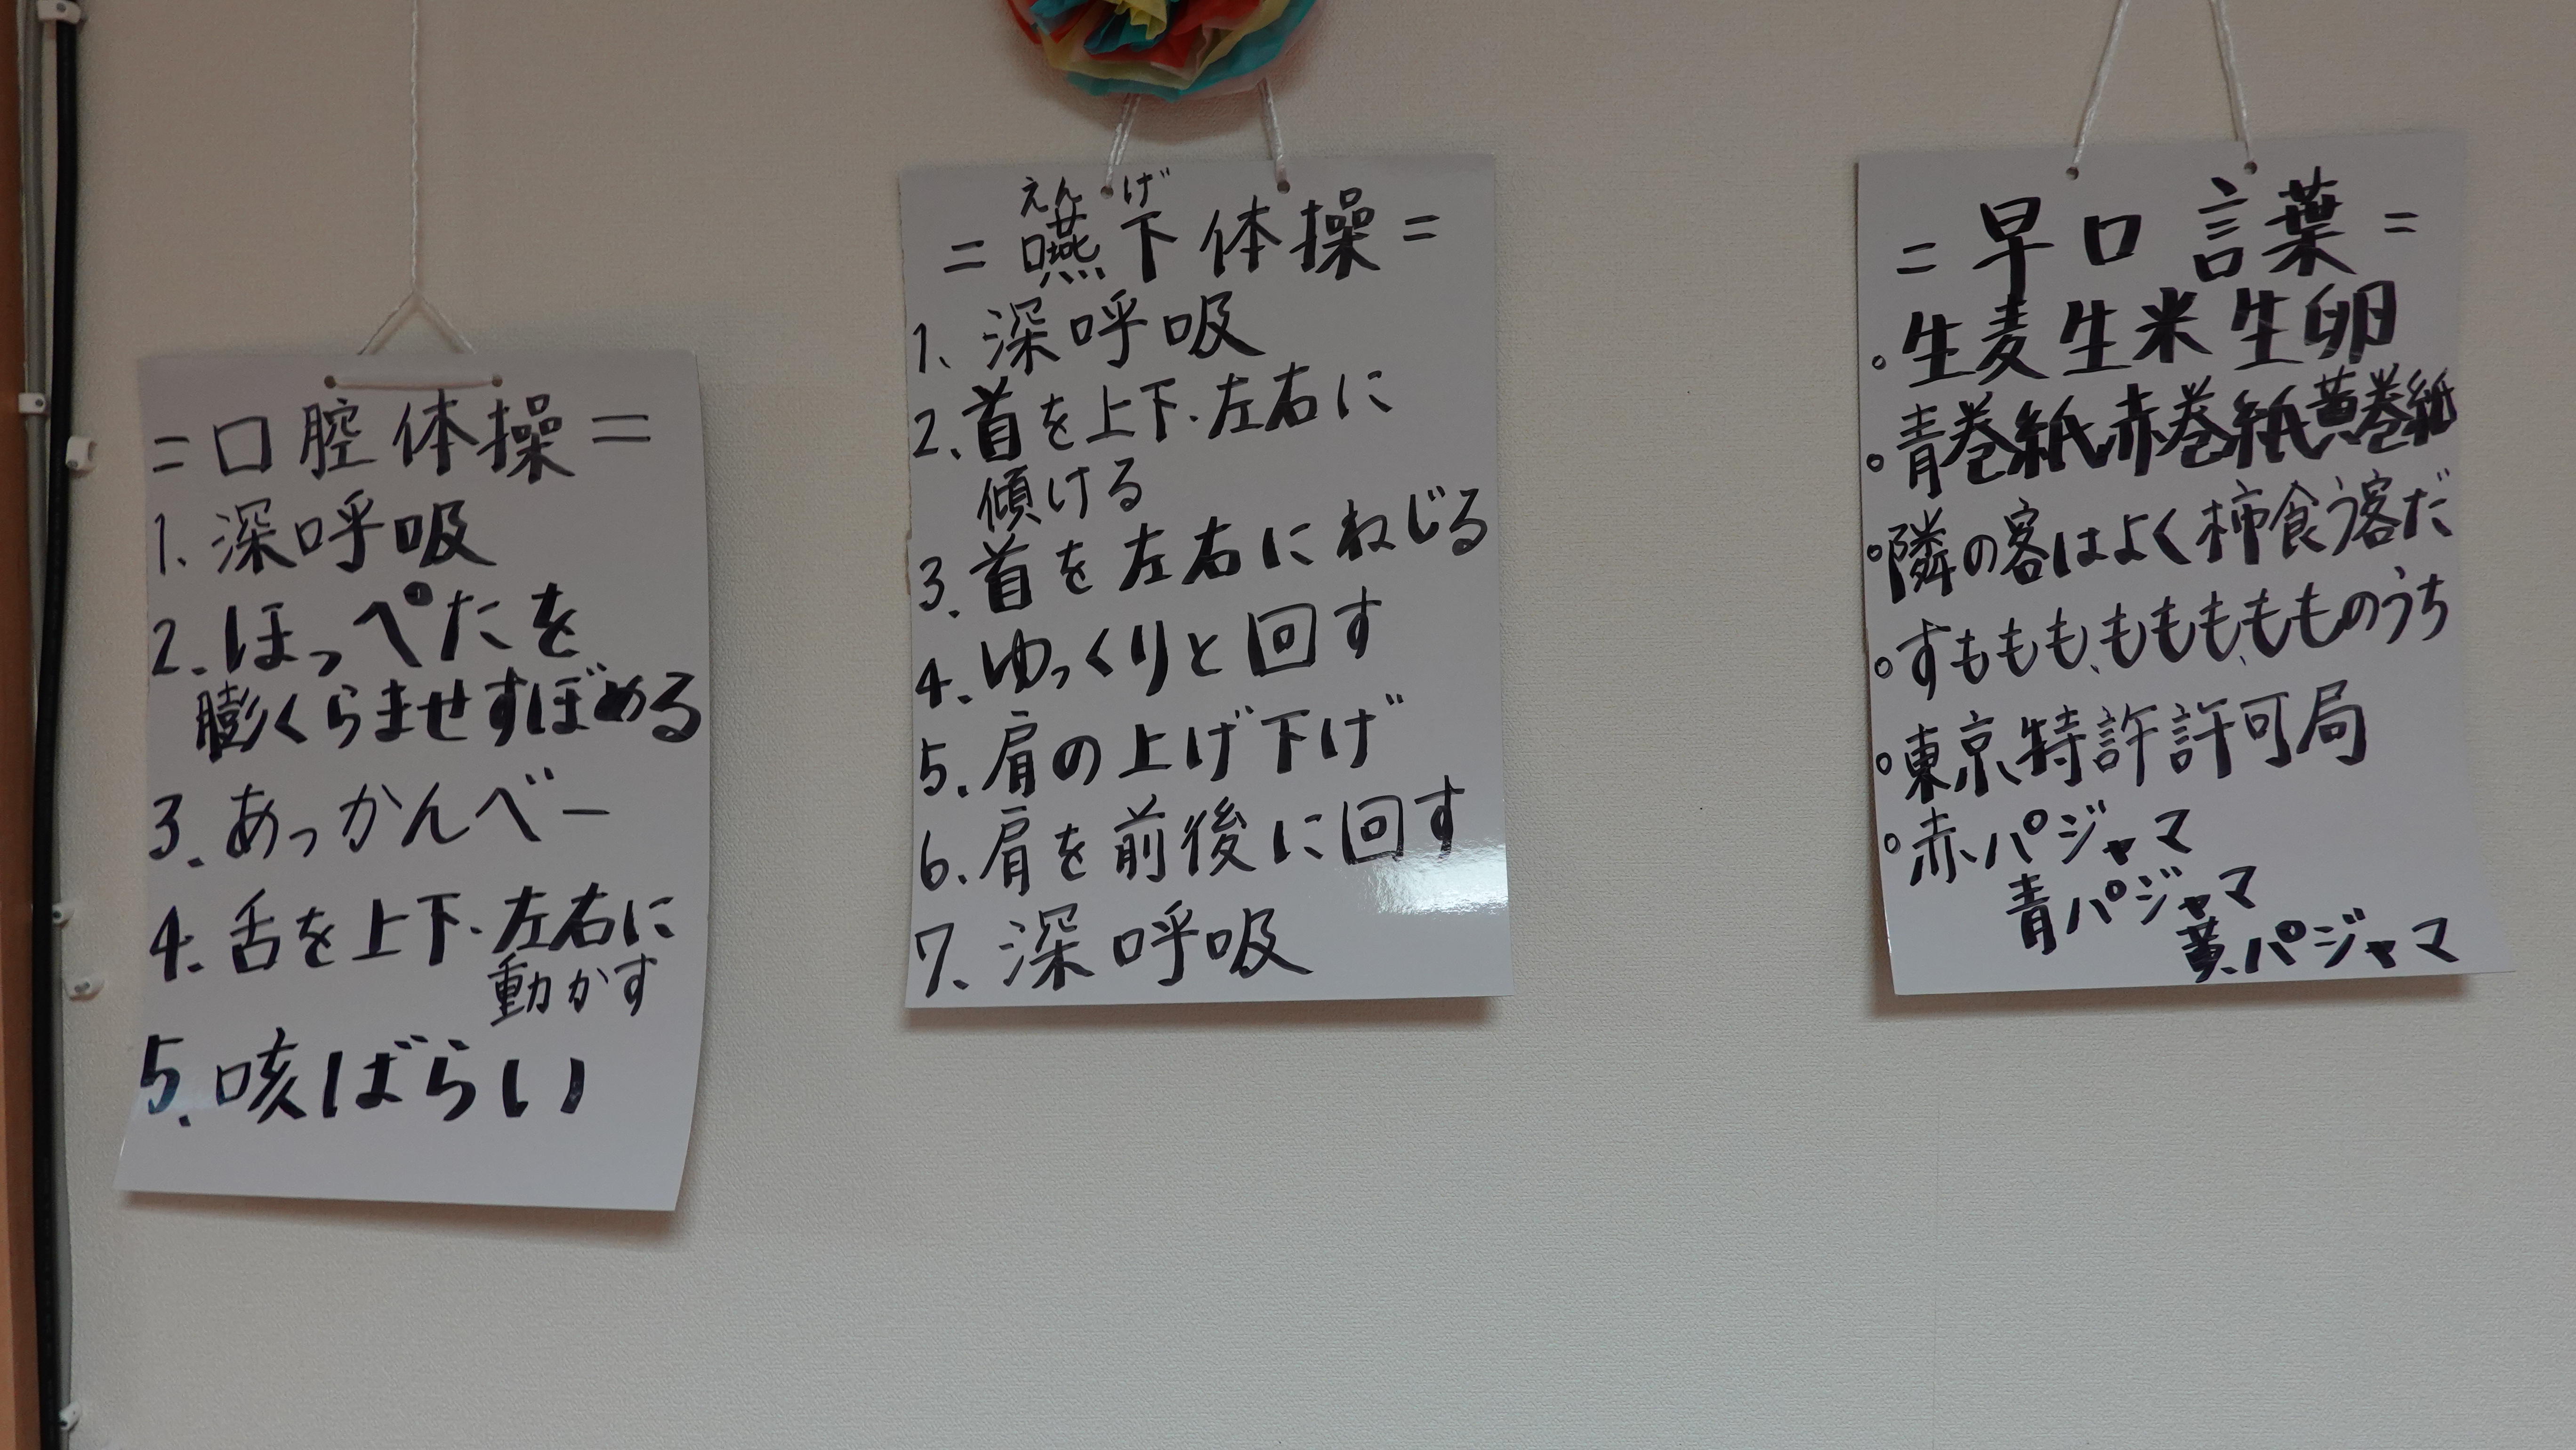 =口腔体操=
1、深呼吸
2.ほっぺたを
膨くらませすぼめる
3.あっかんべー
4.舌を上下.左右に
動かす
5.咳ばらい
えんげ
=嚥下体操=
1、深呼吸
2.首を上下.左右に
傾ける
3.首を左右にねじる
4.ゆっくりと回す
5.肩の上げ下げ
6.肩を前後に回す
7、深呼吸
=早口言葉=
。生麦生米生卵
。青巻紙赤巻紙黄巻紙
。隣の客はよく柿食う客だ
。すももも、ももももも、もものうち
。東京特許許可局
。赤パジャマ
青パジャマ
黄パジャマ